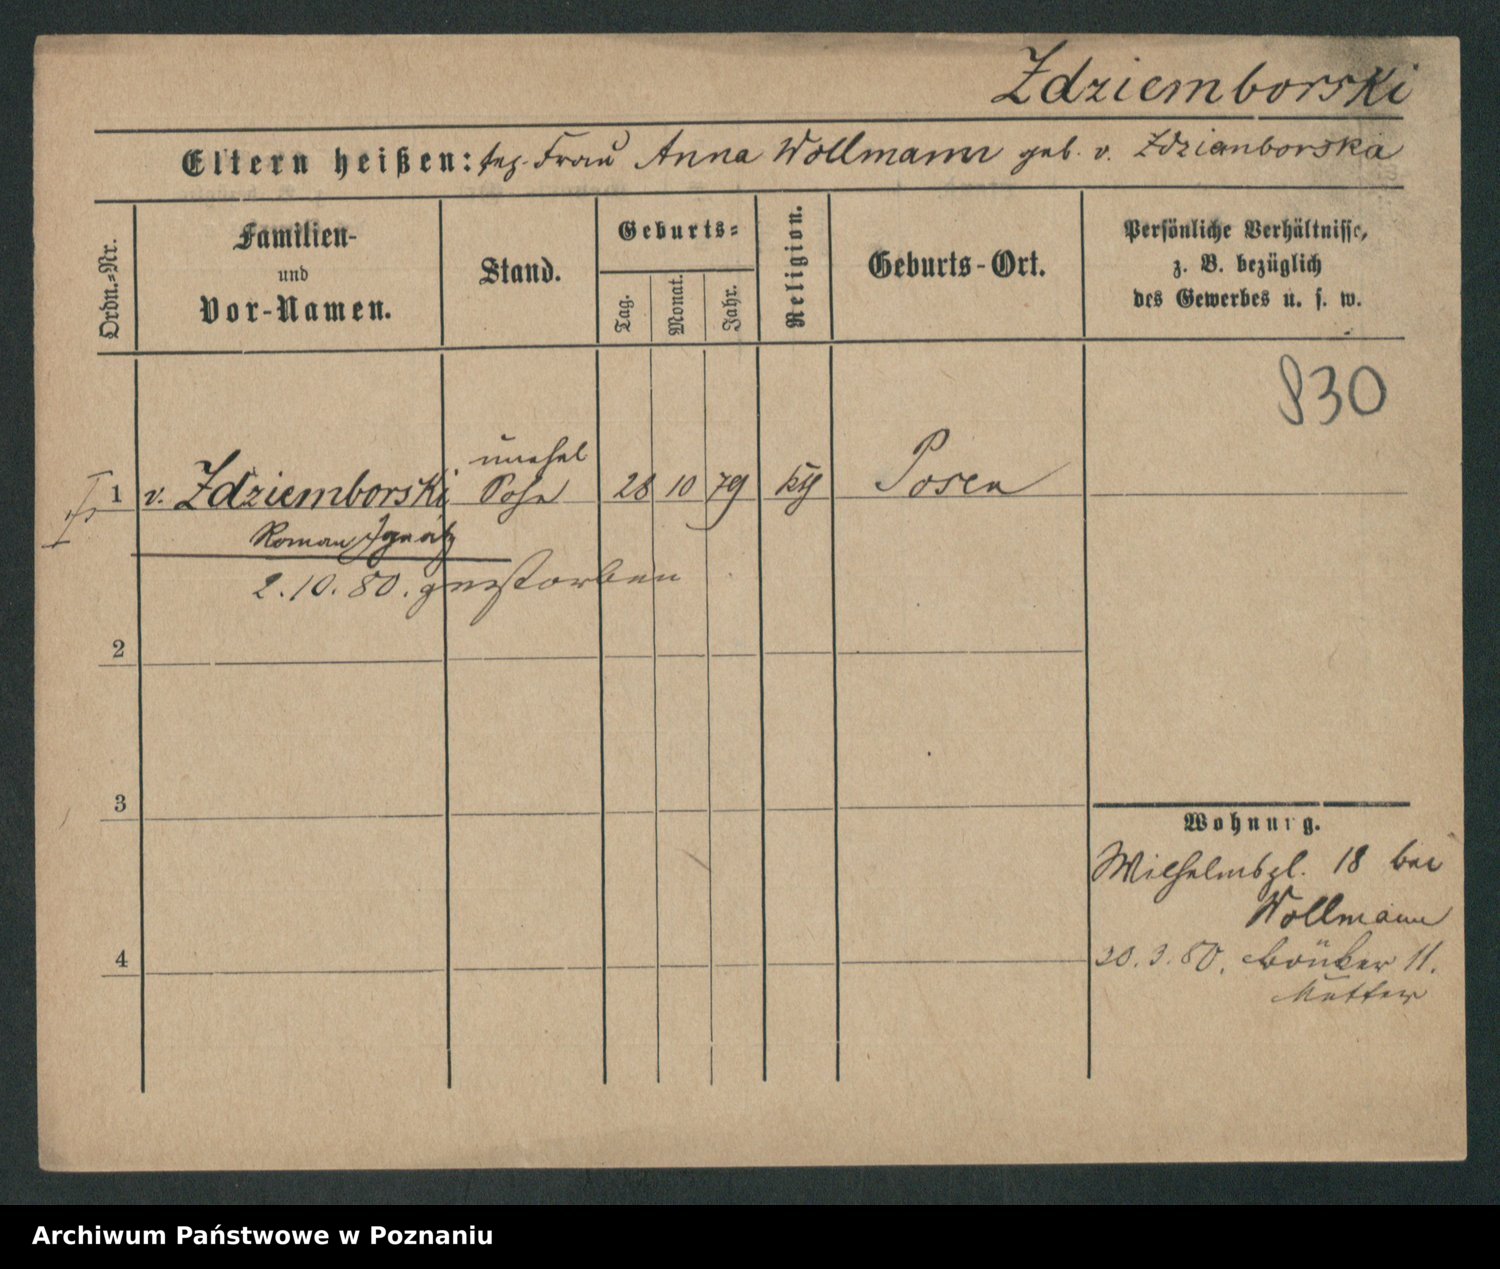 Zdziemborski
Eltern heißen: Frau Anna Wollmann geb. v. Zdzianborska
Ordn.-Nr.
Familien-
und
Vor-Namen.
Stand.
Geburts-
Tag.
Monat.
Jahr.
Religion.
Geburts-Ort.
Persönliche Verhältnisse,
z. B. bezüglich
des Gewerbes u. s. w.
830
unehel
1 v. Zdziemborski Sohn 28 10 79 kth Posen
Roman Ignatz
2.10.80. gestorben
2
3
4
Wohnung.
Wilhelmspl. 18 bei
Wollmann
20.3.80. 11.
Mutter
Archiwum Państwowe w Poznaniu